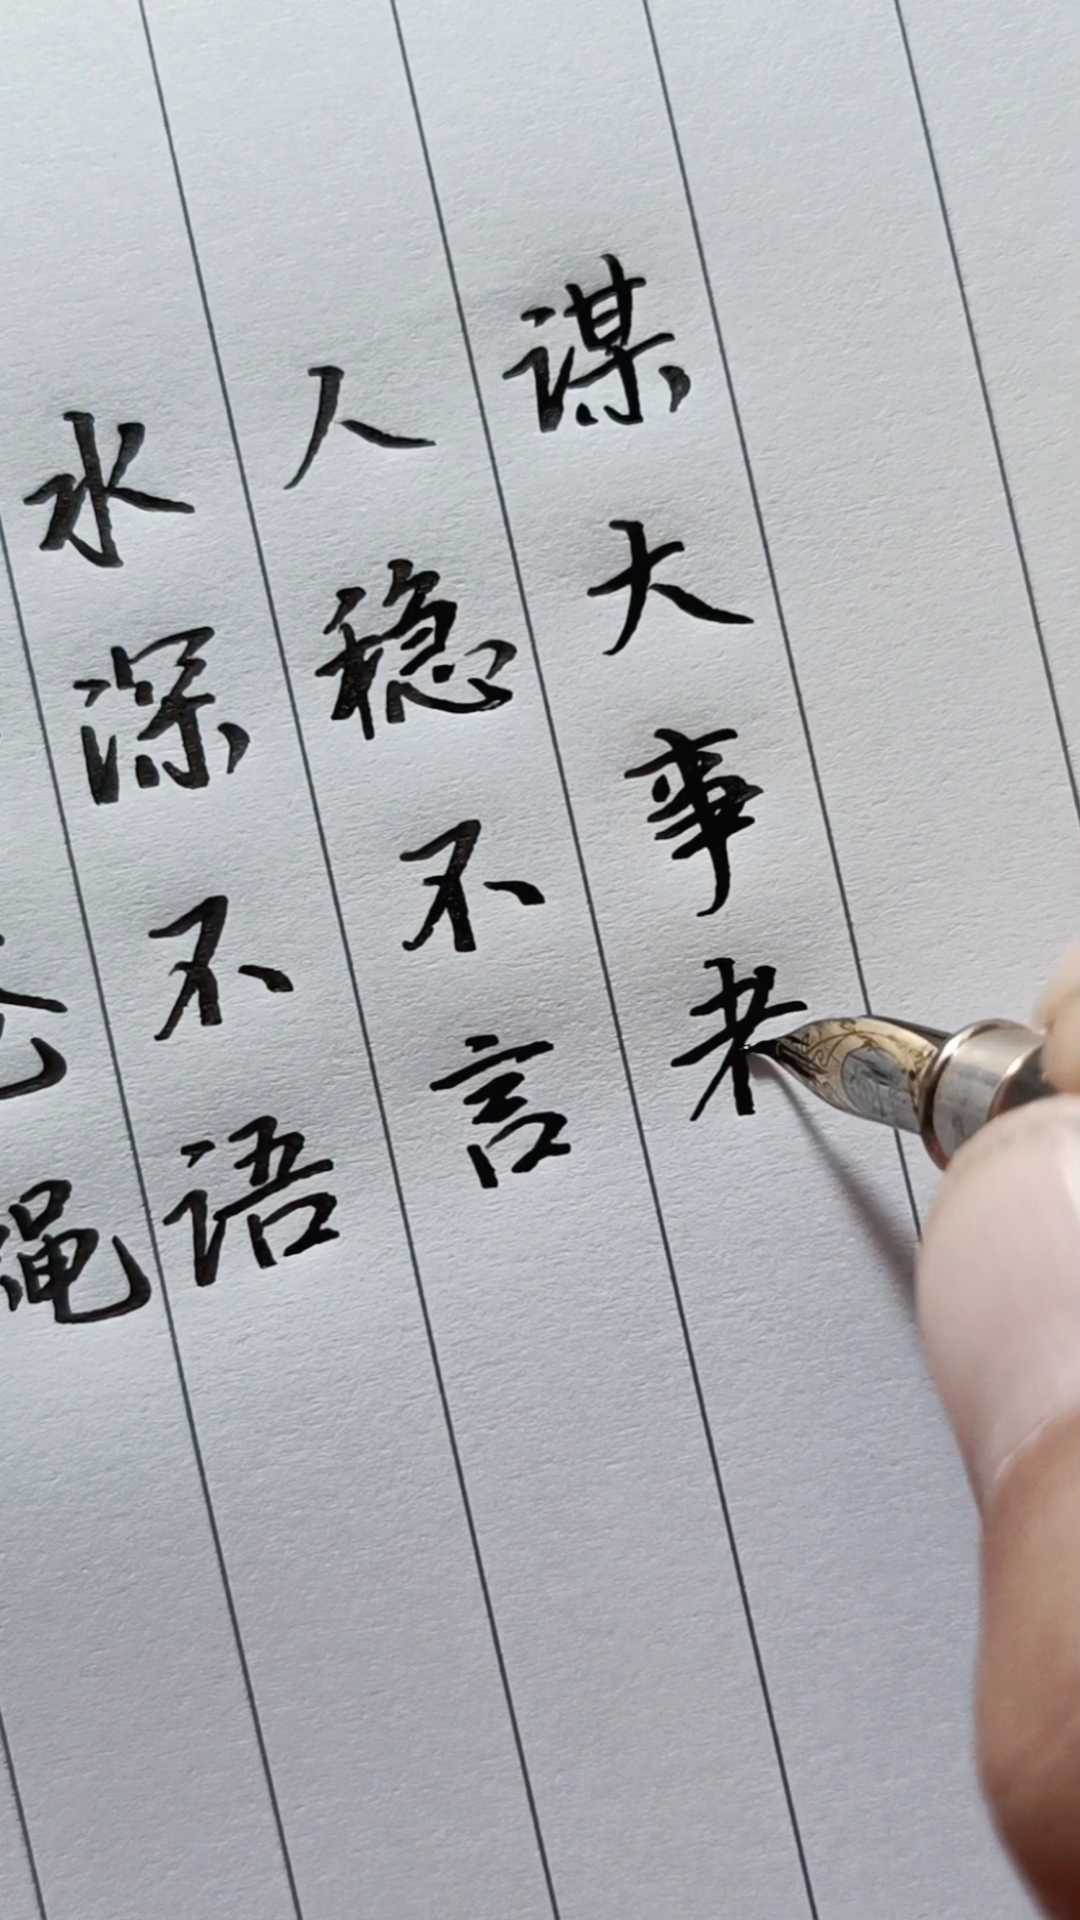 水深不语
人稳不言
谋大事
绳